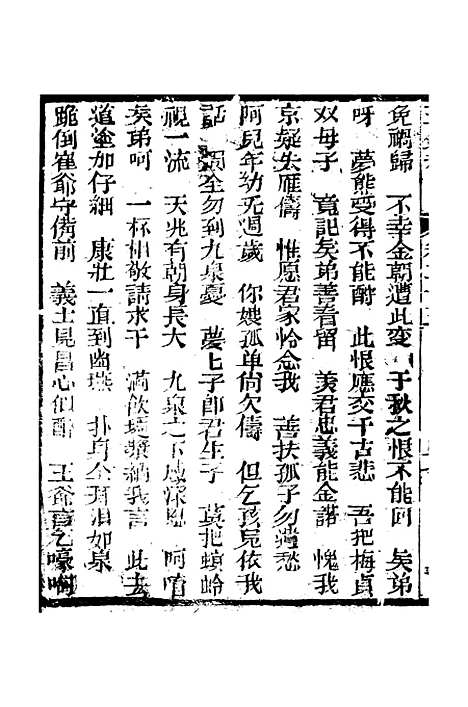 免禍歸　不幸金朝遭此变　千秋之恨不能回　矣弟
呀　夢熊受得不能酧　此恨應交千古悲　吾把梅貞
双母子　竟記矣弟善看留　美君忠義能金諾　愧我
京疑失雁儔　惟愿君家怜念我　善扶孤子勿過愁
阿兒年幼无週歲　你嫂孤单尚欠儔　但乞孩兒依我
話　須全勿到九泉憂　夢上子即君生子　莫把螟蛉
視一流　天兆有朝身長大　九泉之下感深恩　呵噲
矣弟呵　一杯相敬請求干　滿飲瓊漿納我言　此去
道塗加仔細　康壯一直到幽燕　扑身全頁泪如泉
跪倒崔爺守俻前　義士見昌心似酧　王爺言乞嚎啊